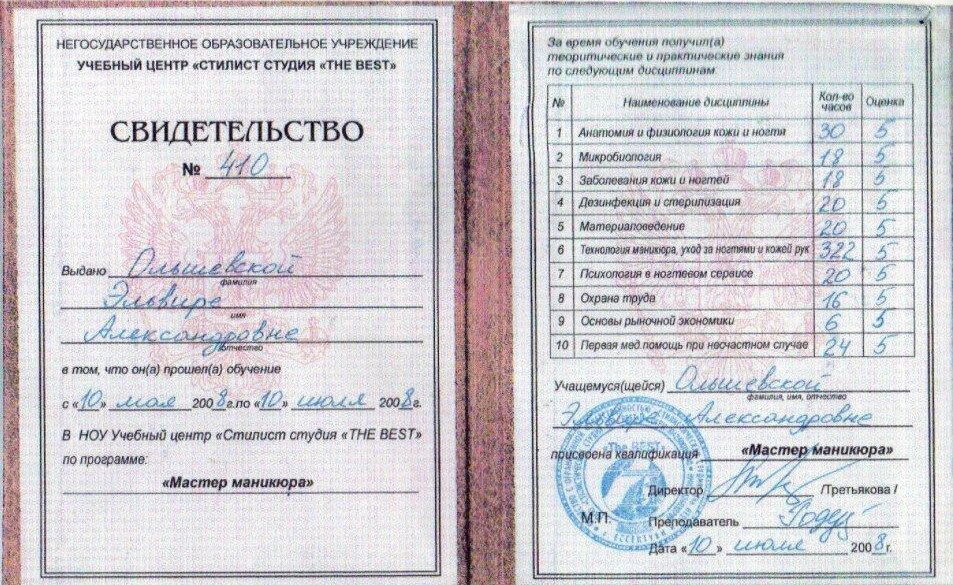 НЕГОСУДАРСТВЕННОЕ ОБРАЗОВАТЕЛЬНОЕ УЧРЕЖДЕНИЕ
УЧЕБНЫЙ ЦЕНТР «СТИЛИСТ СТУДИЯ «THE BEST»
СВИДЕТЕЛЬСТВО
№ 410
Выдано Ольшевской
фамилия
Эльвире
имя
Александровне
отчество
в том, что он(а) прошел(а) обучение
с «10» мая 2008г.по «10» июля 2008г.
В НОУ Учебный центр «Стилист студия «THE BEST»
по программе:
«Мастер маникюра»
За время обучения получил(а)
теоритические и практические знания
по следующим дисциплинам
№ Наименование дисциплины Кол-во часов Оценка
1 Анатомия и физиология кожи и ногтя 30 5
2 Микробиология 18 5
3 Заболевания кожи и ногтей 18 5
4 Дезинфекция и стерилизация 20 5
5 Материаловедение 20 5
6 Технология маникюра, уход за ногтями и кожей рук 322 5
7 Психология в ногтевом сервисе 20 5
8 Охрана труда 16 5
9 Основы рыночной экономики 6 5
10 Первая мед.помощь при несчастном случае 24 5
Учащемуся(щейся) Ольшевской
фамилия, имя, отчество
Эльвире Александровне
присвоена квалификация «Мастер маникюра»
Директор /Третьякова /
М.П. Преподаватель
Дата «10» июля 2008г.